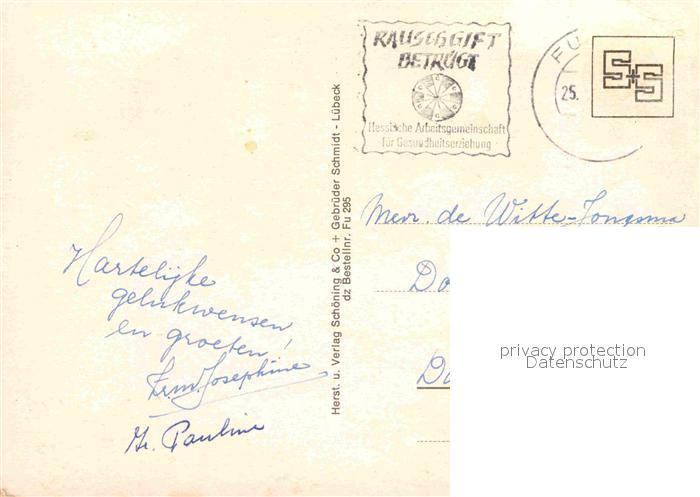 RAUSCHGIFT
BETRÜGT
Hessische Arbeitsgemeinschaft
für Gesundheitserziehung
FU
25.
S+S
Herst. u. Verlag Schöning & Co + Gebrüder Schmidt - Lübeck
dz Bestellnr. Fu 295
Mevr. de Witte-Jongsma
Do
Da
Hartelijke
gelukwensen
en groeten!
Josephine
Gr. Pauline
privacy protection
Datenschutz